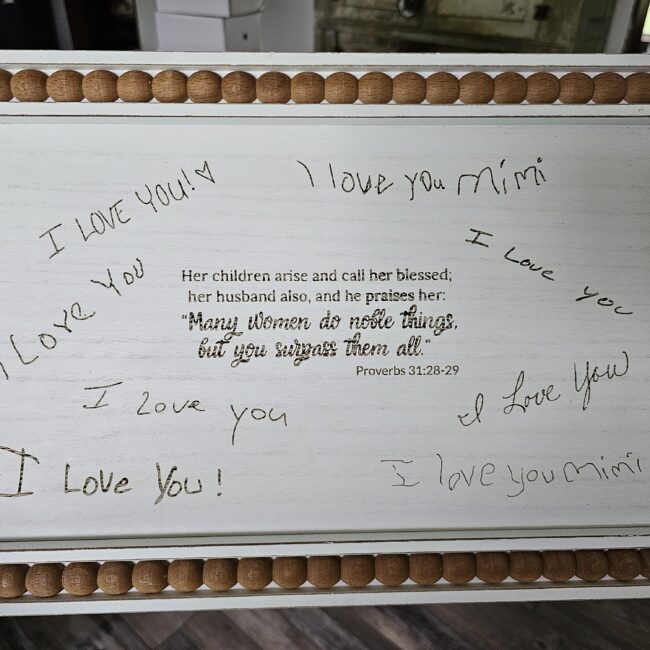 I LOVE YOU!
I love you mimi
I Love you
I Love You
Her children arise and call her blessed;
her husband also, and he praises her:
"Many women do noble things,
but you surpass them all."
Proverbs 31:28-29
I Love you
I Love You
I Love You!
I love you mimi